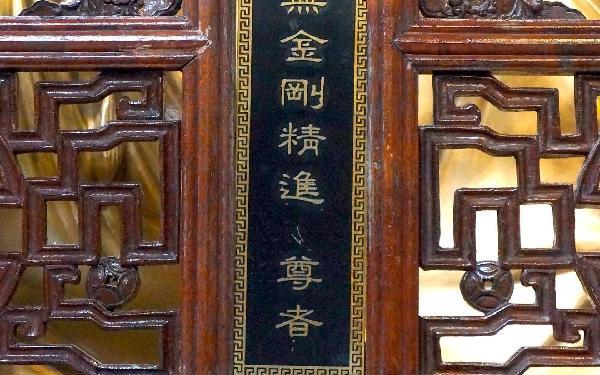 無金剛精進、尊者